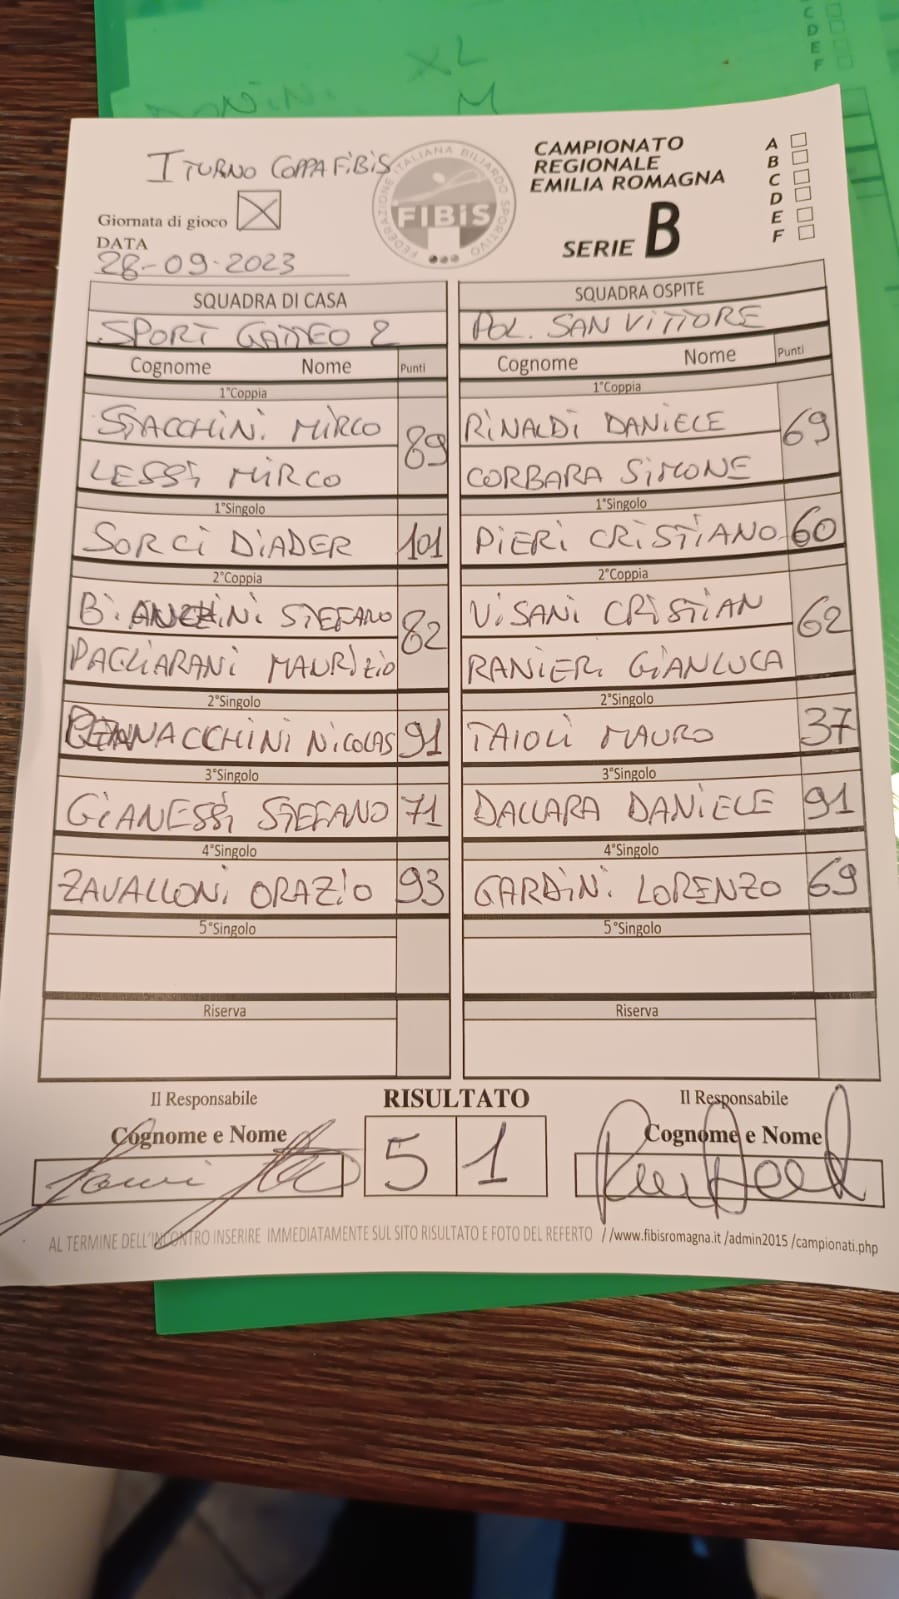 XL
M
C
D
E
F
I TURNO COPPA FIBIS
FEDERAZIONE ITALIANA BILIARDO SPORTIVO
FIBiS
CAMPIONATO
REGIONALE
EMILIA ROMAGNA
SERIE B
A
B
C
D
E
F
Giornata di gioco
DATA
28-09-2023
SQUADRA DI CASA
SPORT GATTEO 2
Cognome Nome Punti
1°Coppia
STACCHINI MIRCO 89
LESSI MIRCO
1°Singolo
SORCI DIADER 101
2°Coppia
BIANCHINI STEFANO 82
PAGLIARANI MAURIZIO
2°Singolo
NICOLAS 91
3°Singolo
GIANESSI STEFANO 71
4°Singolo
ZAVALLONI ORAZIO 93
5°Singolo
Riserva
SQUADRA OSPITE
POL. SAN VITTORE
Cognome Nome Punti
1°Coppia
RINALDI DANIELE 69
CORBARA SIMONE
1°Singolo
PIERI CRISTIANO 60
2°Coppia
VISANI CRISTIAN 62
RANIERI GIANLUCA
2°Singolo
TAIOLI MAURO 37
3°Singolo
DALLARA DANIELE 91
4°Singolo
GARDINI LORENZO 69
5°Singolo
Riserva
Il Responsabile
Cognome e Nome
RISULTATO
5 1
Il Responsabile
Cognome e Nome
AL TERMINE DELL'INCONTRO INSERIRE IMMEDIATAMENTE SUL SITO RISULTATO E FOTO DEL REFERTO //www.fibisromagna.it/admin2015/campionati.php